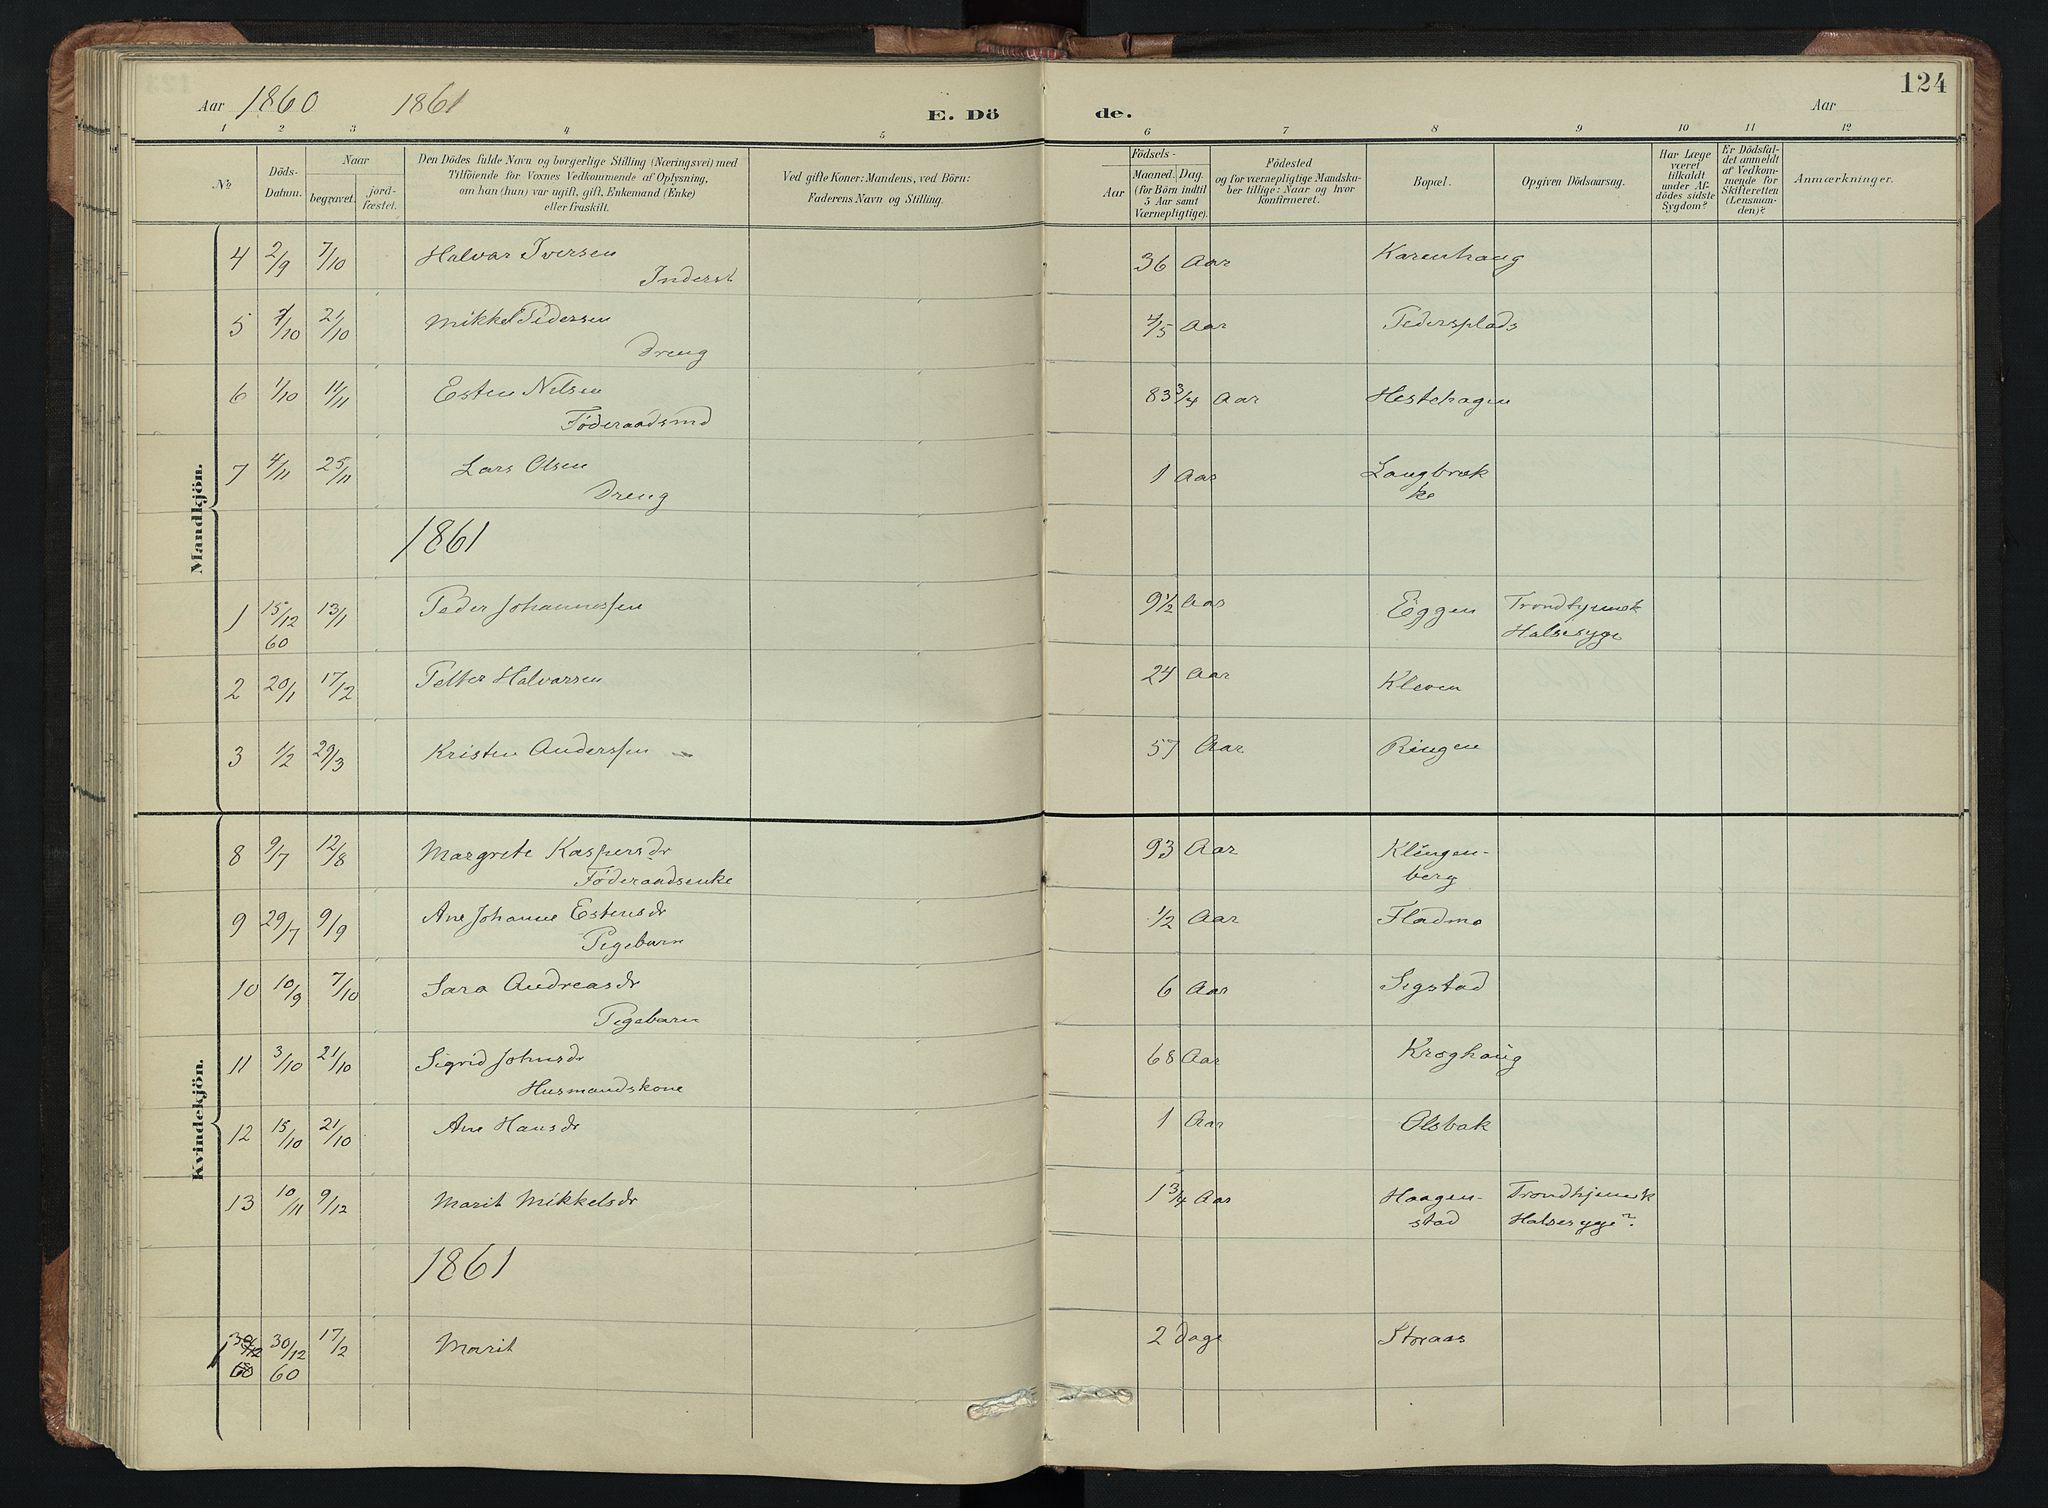 124
Aar 1860 1861
E. Dö
de.
Aar
1 2 3 4 5 6 7 8 9 10 11 12
No
Döds-
Datum.
Naar
begravet.
jord-
fæstet.
Den Dödes fulde Navn og borgerlige Stilling (Næringsvei) med
Tilföiende for Voxnes Vedkommende af Oplysning,
om han (hun) var ugift, gift, Enkemand (Enke)
eller fraskilt.
Ved gifte Koner: Mandens, ved Börn:
Faderens Navn og Stilling.
Födsels-
Aar
Maaned. Dag.
(for Börn indtil
5 Aar samt
Værnepligtige).
Födested
og for værnepligtige Mandska-
ber tillige: Naar og hvor
konfirmeret.
Bopæl.
Opgiven Dödsaarsag.
Har Læge
været
tilkaldt
under Af-
dödes sidste
Sygdom?
Er Dödsfal-
det anmeldt
af Vedkom-
mende for
Skifteretten
(Lensman-
den)?
Anmærkninger.
Mandkjön.
4 2/9 7/10 Halvar Iversen 36 Aar Karenhaug
Inderst
5 7/10 21/10 Mikkel Pedersen 4/5 Aar Pedersplads
Dreng
6 1/10 11/11 Esten Nelsen 83 3/4 Aar Hestehagen
Föderaadsmd
7 4/11 25/11 Lars Olsen 1 Aar Langbræk
Dreng ke
1861
1 15/12 13/1 Peder Johannessen 9 1/2 Aar Eggen Trondhjemsk
60 Halsesyge
2 20/1 17/2 Petter Halvorsen 24 Aar Kleven
3 1/2 29/3 Kristen Anderssen 57 Aar Ringen
Kvindekjön.
8 9/7 12/8 Margrete Kaspersdr 93 Aar Klingen-
Föderaadsenke berg
9 29/7 9/9 Ane Johanne Estensdr 1/2 Aar Fladmo
Pigebarn
10 10/9 7/10 Sara Andreasdr 6 Aar Sigstad
Pigebarn
11 3/10 21/10 Sigrid Johnsdr 68 Aar Kroghaug
Husmandskone
12 15/10 21/10 Ane Hansdr 1 Aar Olsbak
13 10/11 9/12 Marit Mikkelsdr 1 3/4 Aar Haagen- Trondhjemsk
stad Halsesyge?
1861
1 30/12 30/12 17/2 Marit 2 dage Storaas
60 60